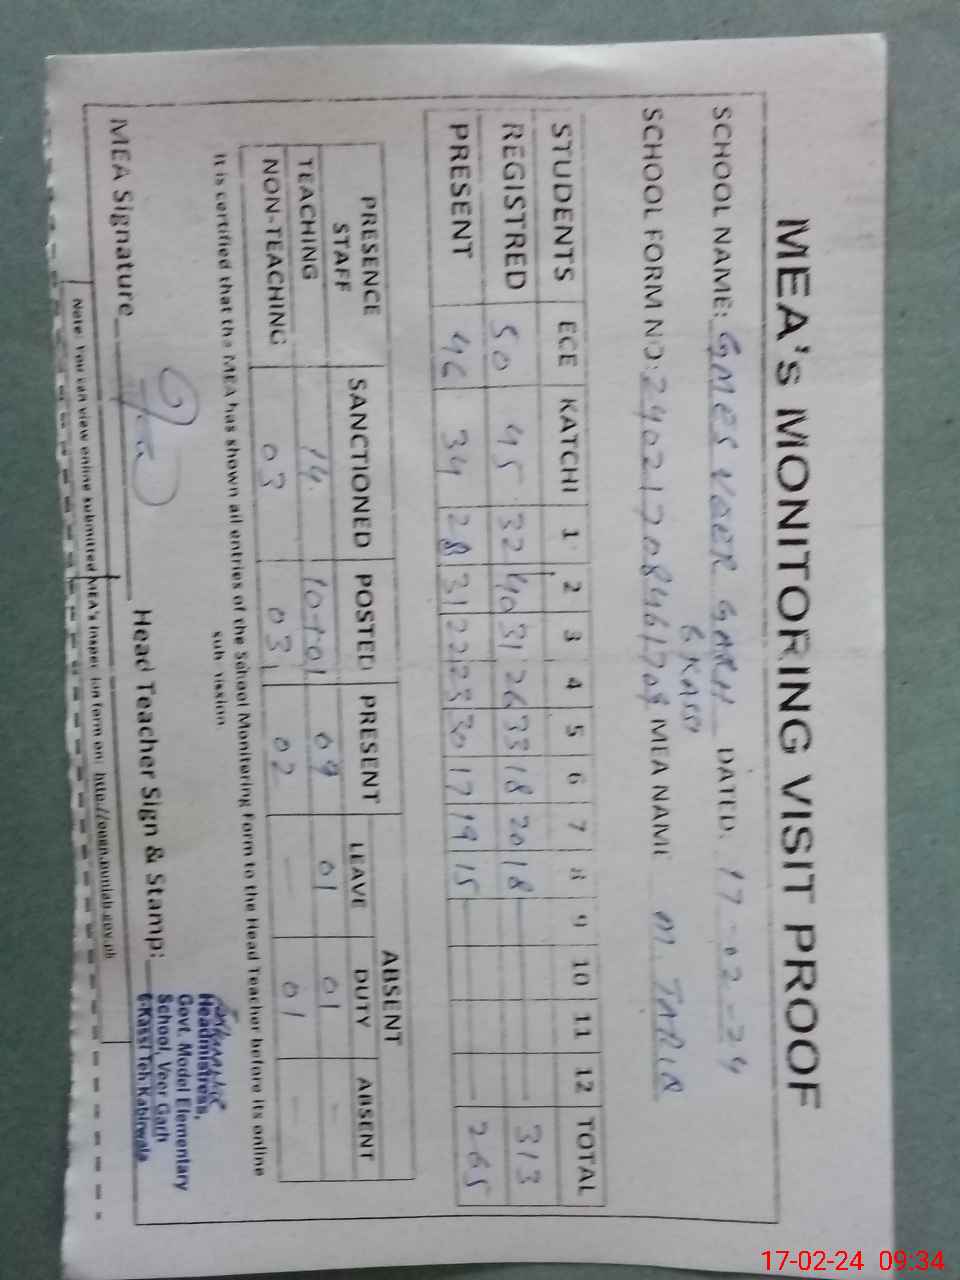 MEA's MONITORING VISIT PROOF
SCHOOL NAME: GMES VEER GARH DATED: 17-02-24
6 KASSI
SCHOOL FORM NO: MEA NAME M. TARIQ
STUDENTS ECE KATCHI 1 2 3 4 5 6 7 8 9 10 11 12 TOTAL
REGISTRED 50 45 32 40 31 26 33 18 20 18 313
PRESENT 46 34 28 31 22 23 30 17 19 15 265
PRESENCE STAFF SANCTIONED POSTED PRESENT ABSENT
LEAVE DUTY ABSENT
TEACHING 14 10+01 09 01 01 -
NON-TEACHING 03 03 02 - 01 -
It is certified that the MEA has shown all entries of the School Monitoring Form to the Head Teacher before its online
submission.
MEA Signature Head Teacher Sign & Stamp:
Headmistress,
Govt. Model Elementary
School, Veer Garh
6-Kassi Teh.Kabirwala
Note: You can view online submitted MEA's inspection form on: http://open.punjab.gov.pk
17-02-24 09:34